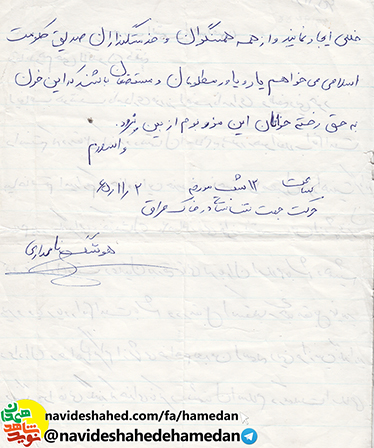 خللی ایجاد نمایند و از همه همسنگران و خدمتگذاران صدیق حکومت
اسلامی می‌خواهم یار و یاور مظلومان و مستضعفان باشند که این خون
به حق ریخته جوانان این مرز و بوم از بین نرود.
والسلام
ساعت ۱۲ شب مورخه ۲ ر۱۱ر۶۵
حرکت جهت در خاک عراق
هوشنگ
navideshahed.com/fa/hamedan
@navideshahedehamedan
نوید شاهد
همدان